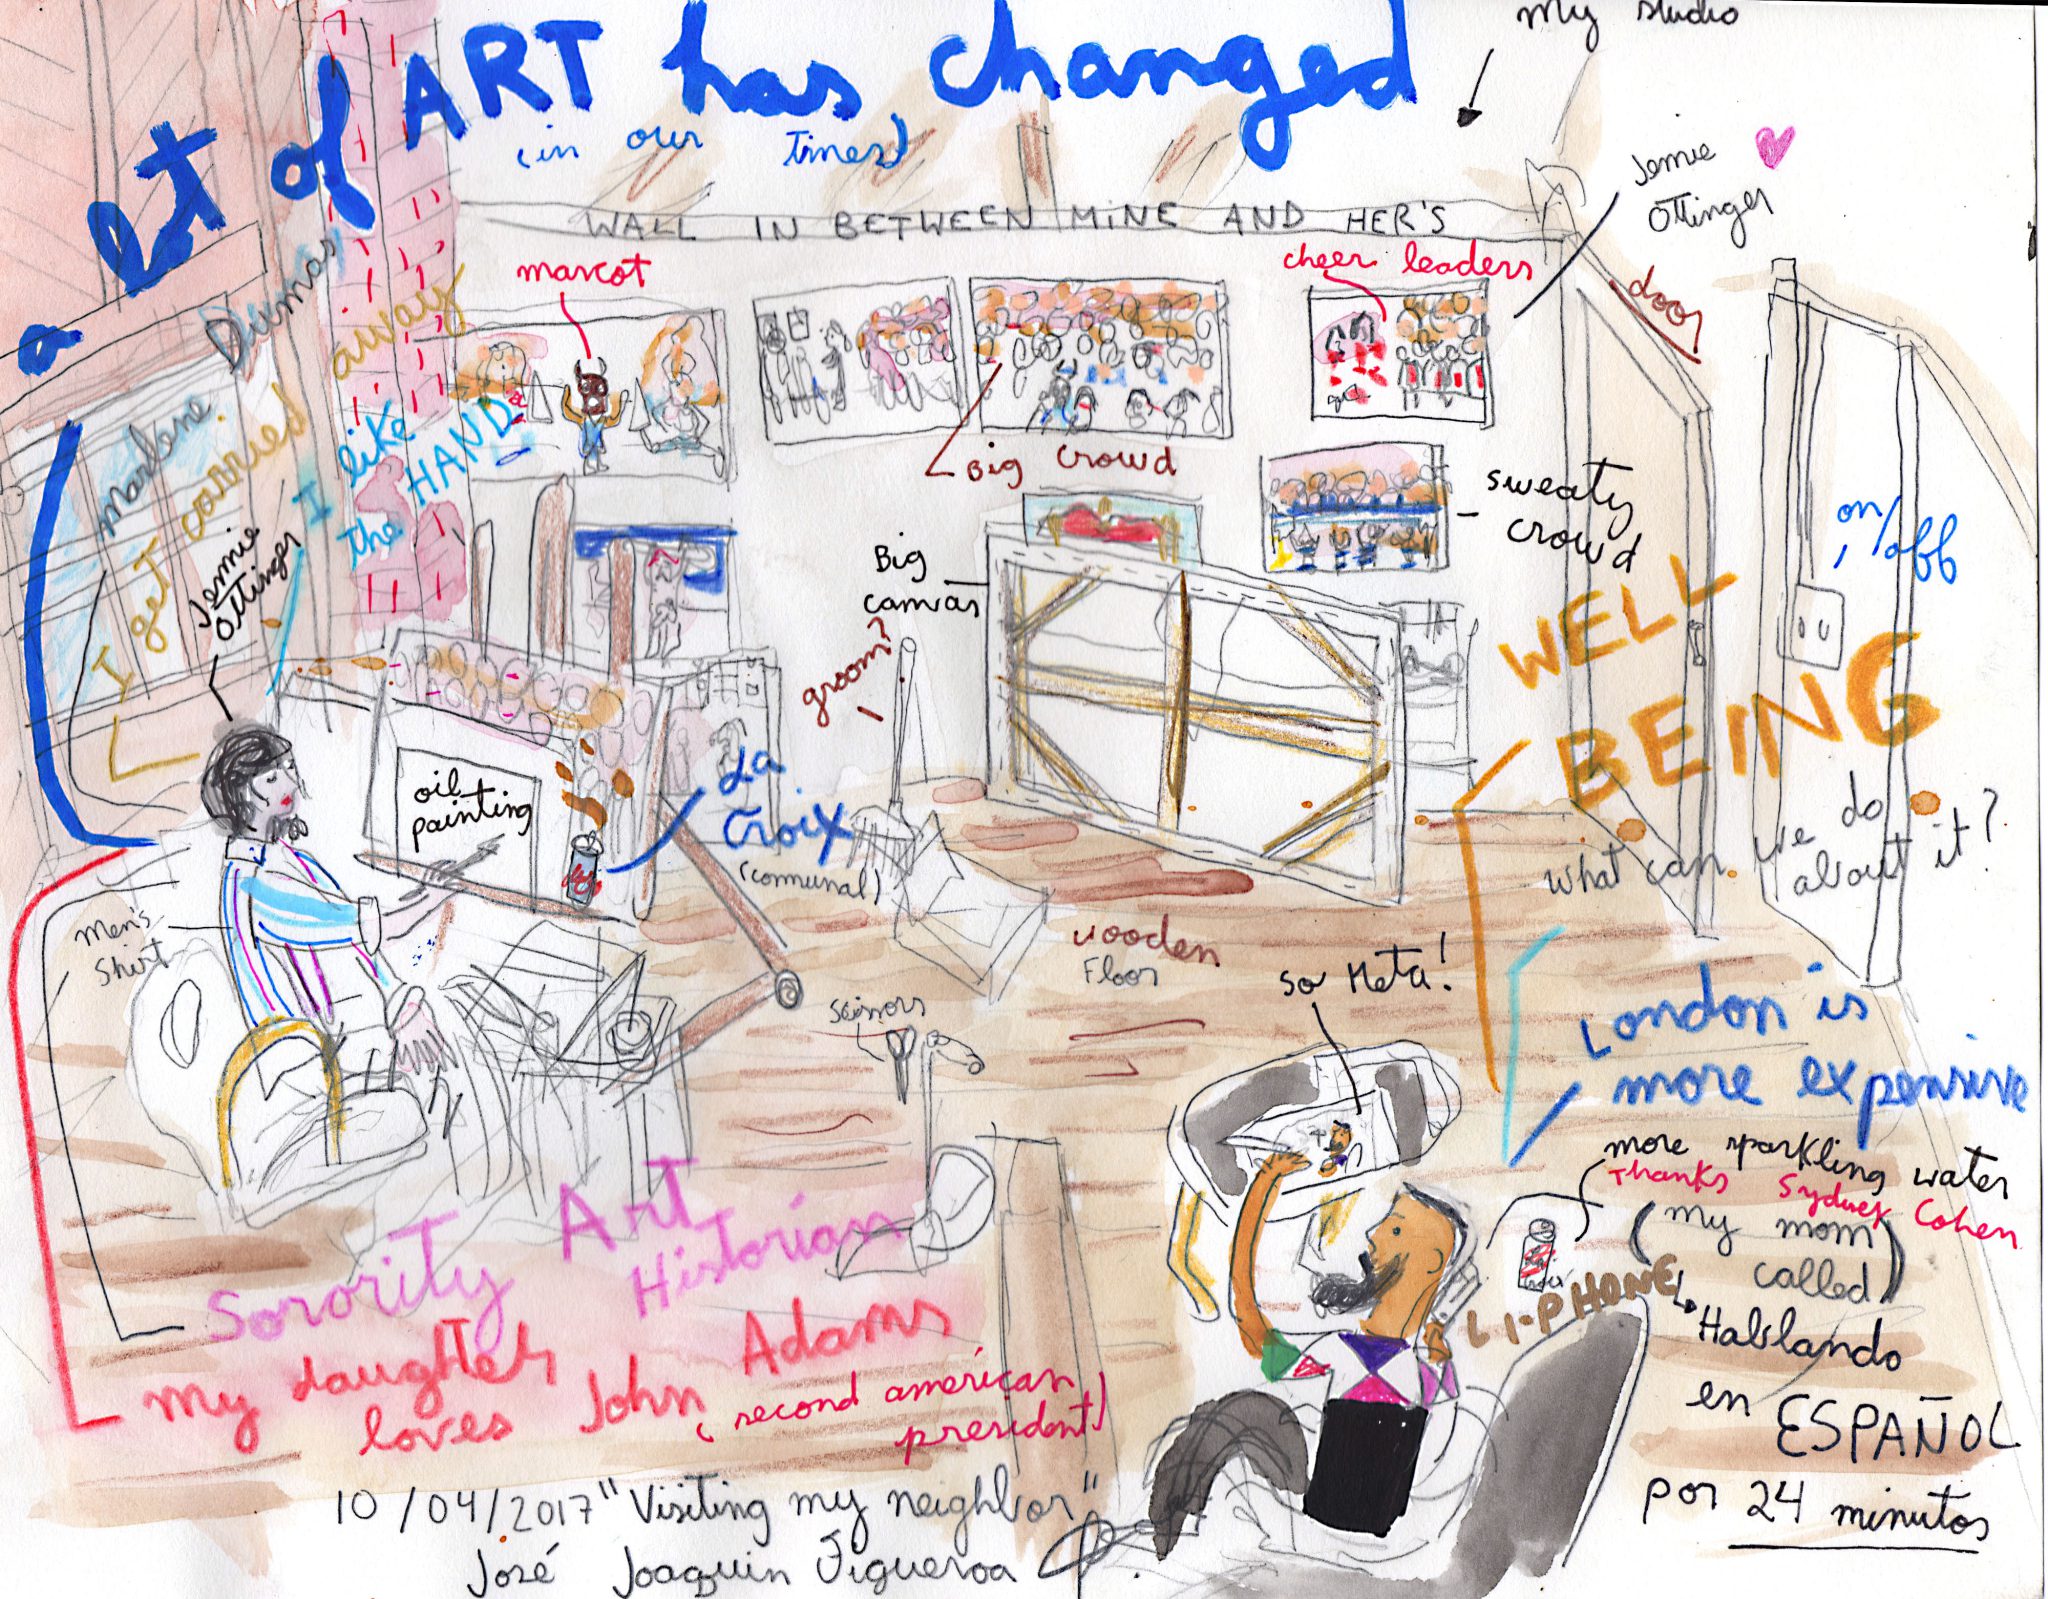 My studio
a lot of ART has changed
(in our times)
Jennie
Ottinger
WALL IN BETWEEN MINE AND HER'S
marcot
cheer leaders
door
Marlene Dumas
I get carried away
I like
the HAND
Jennie
Ottinger
Big crowd
sweaty
crowd
on/off
Big
canvas
groom?
WELL
BEING
oil
painting
La
Croix
(communal)
what can we do
about it?
Men's
shirt
wooden
Floor
scissors
so Meta!
London is
more expensive
more sparkling water
Thanks Sydney Cohen
(my mom
called)
LI-PHONE
Hablando
en ESPAÑOL
por 24 minutos
Sorority Art
Historian
my daughter
loves John Adams
(second américan
president)
10/04/2017 "Visiting my neighbor"
José Joaquin Figueroa